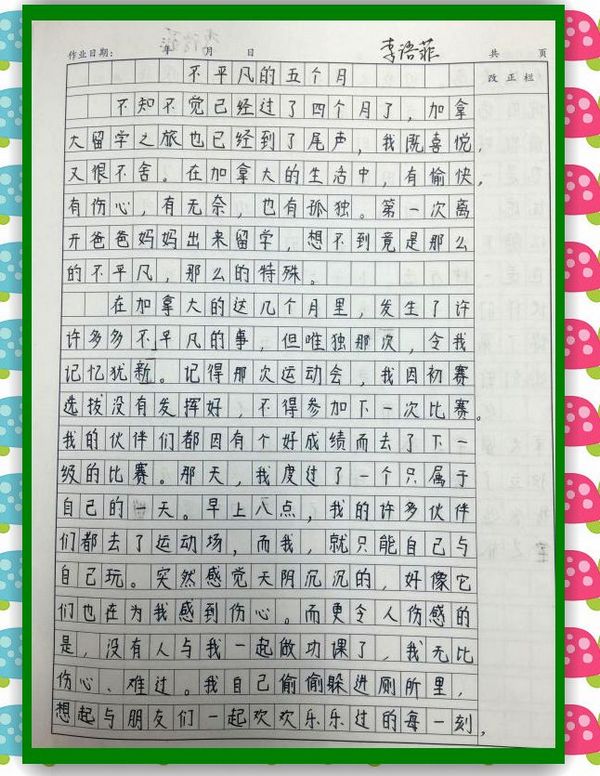 作业日期： 年 月 日 李语菲 共 页
不平凡的五个月 改正栏
不知不觉已经过了四个月了，加拿
大留学之旅也已经到了尾声，我既喜悦，
又恨不舍。在加拿大的生活中，有愉快，
有伤心，有无奈，也有孤独。第一次离
开爸爸妈妈出来留学，想不到竟是那么
的不平凡，那么的特殊。
在加拿大的这几个月里，发生了许
许多多不平凡的事，但唯独那次，令我
记忆犹新。记得那次运动会，我因初赛
选拔没有发挥好，不得参加下一次比赛。
我的伙伴们都因有个好成绩而去了下一
级的比赛。那天，我度过了一个只属于
自己的一天。早上八点，我的许多伙伴
们都去了运动场，而我，就只能自己与
自己玩。突然感觉天阴沉沉的，好像它
们也在为我感到伤心。而更令人伤感的
是，没有人与我一起做功课了，我无比
伤心、难过。我自己偷偷躲进厕所里，
想起与朋友们一起欢欢乐乐过的每一刻，